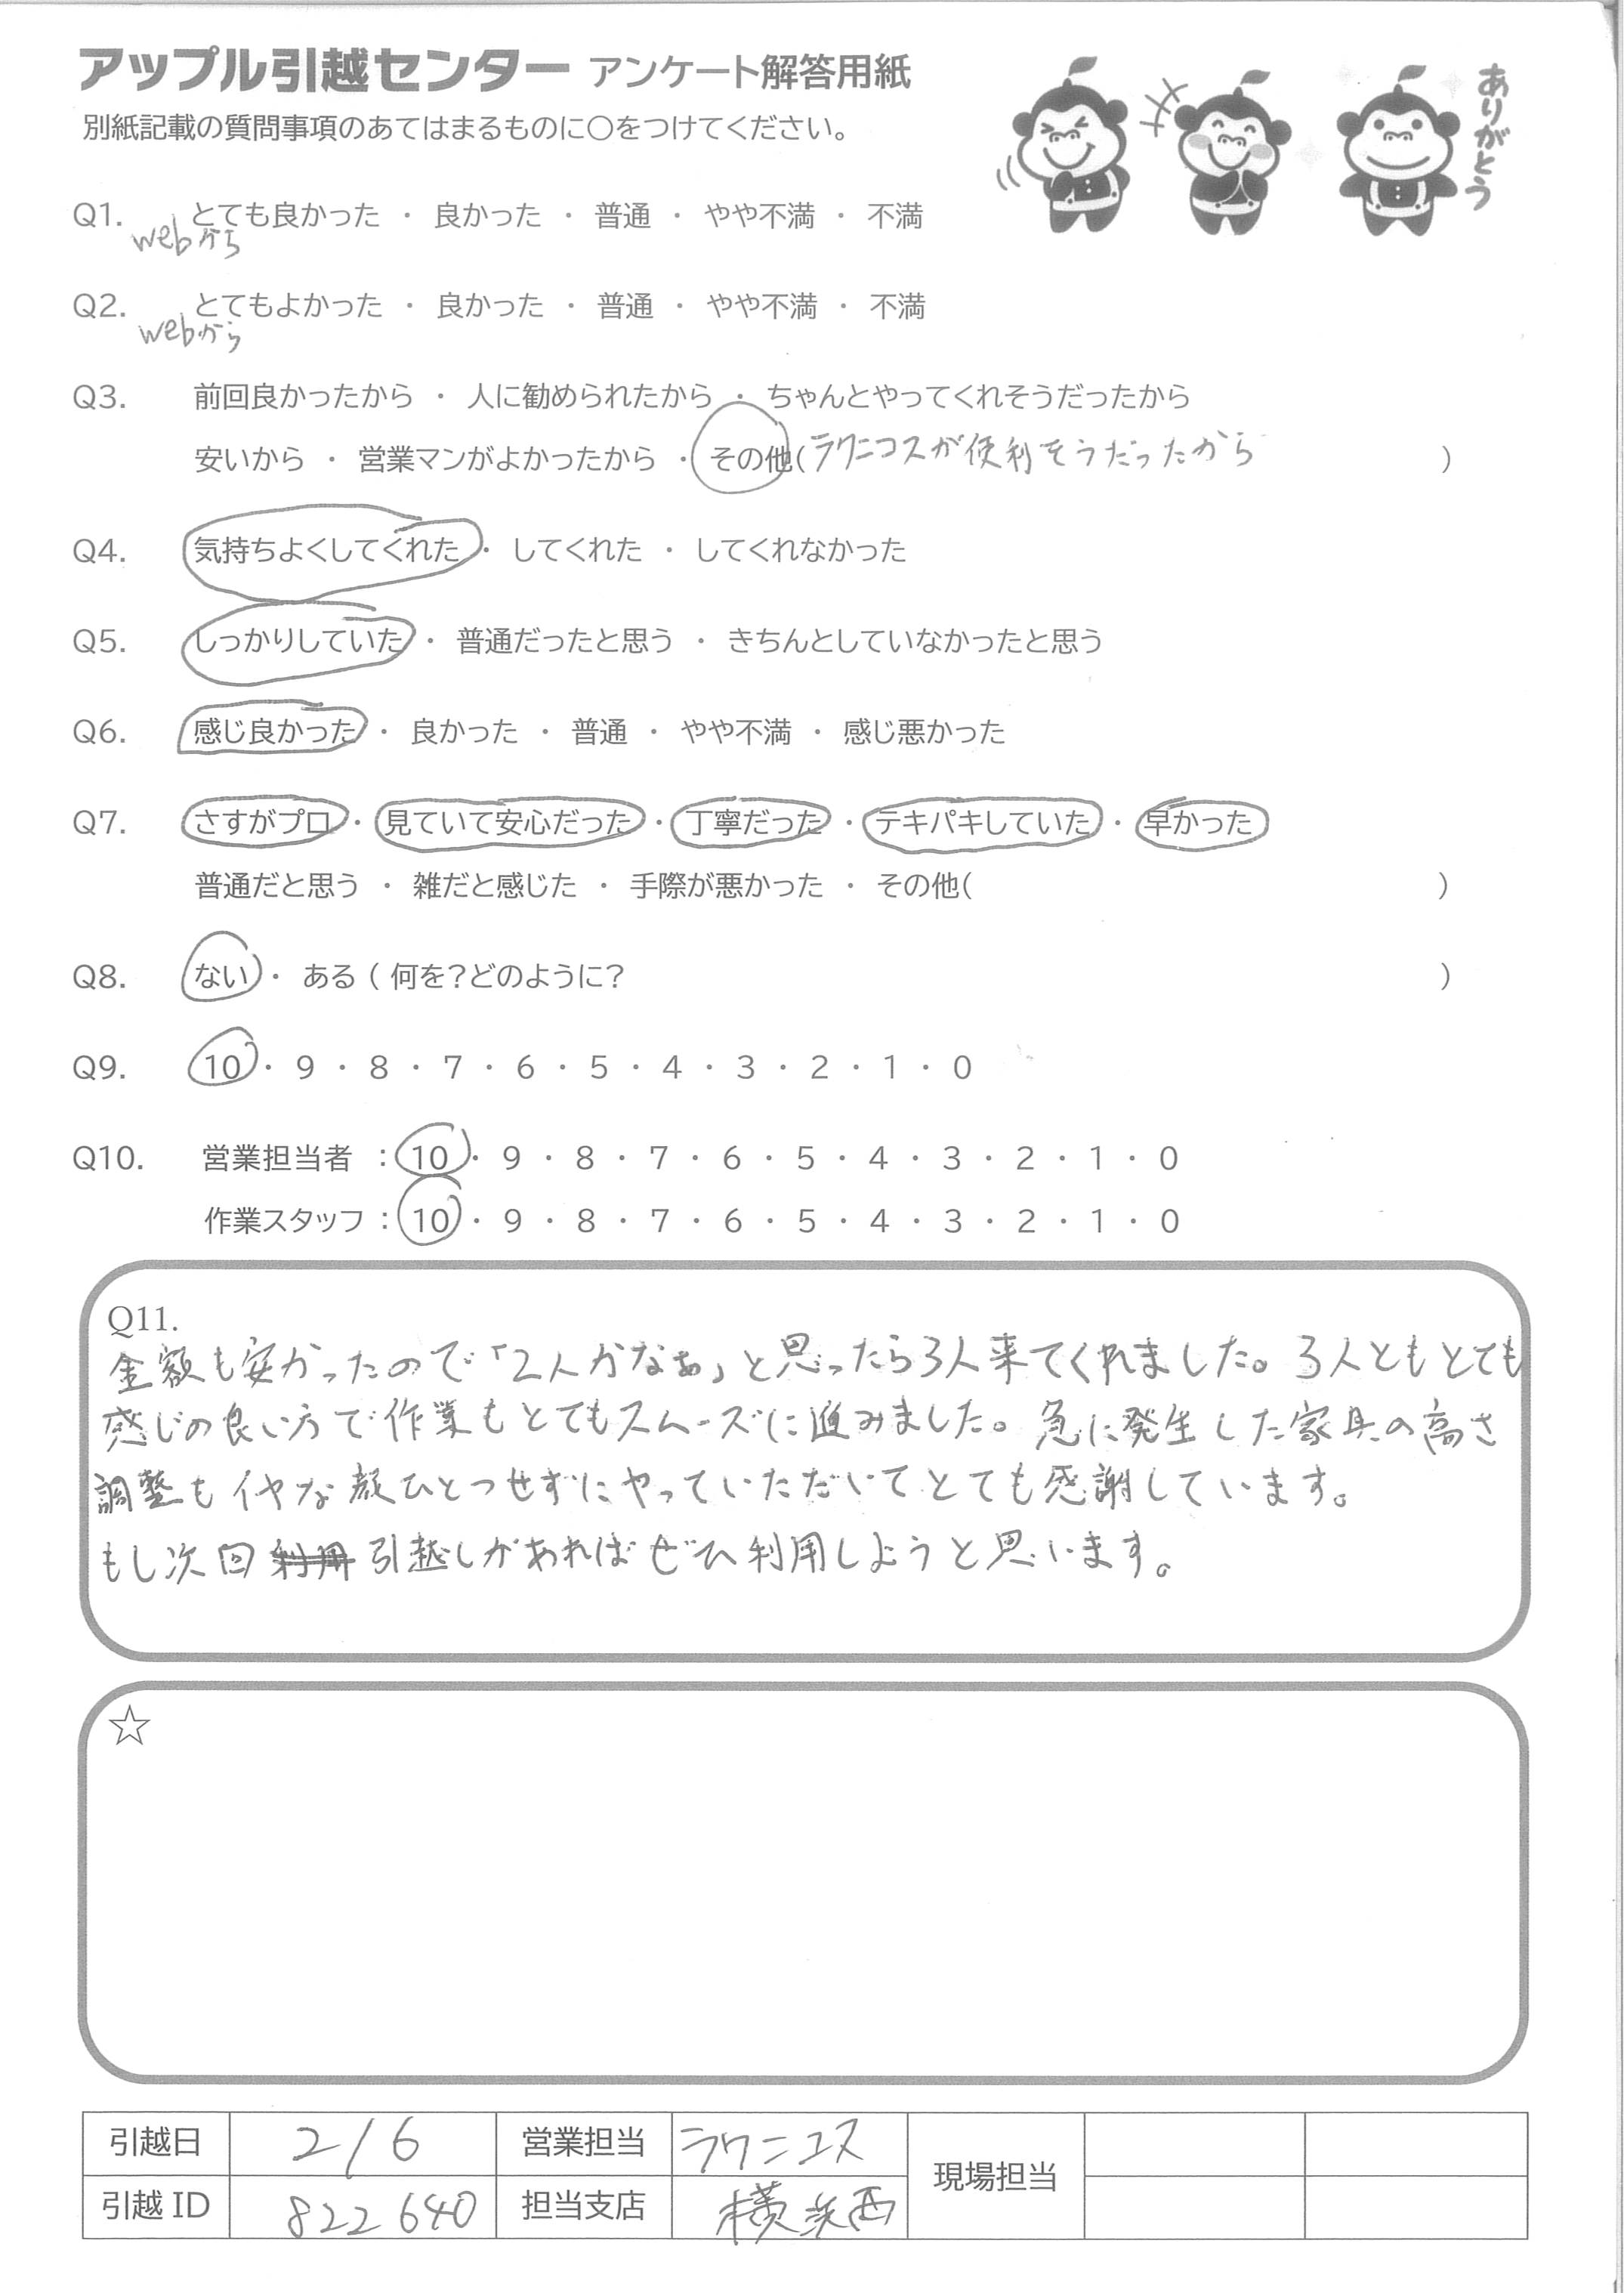 アップル引越センター アンケート解答用紙
別紙記載の質問事項のあてはまるものに○をつけてください。
ありがとう
Q1. とても良かった ・ 良かった ・ 普通 ・ やや不満 ・ 不満
webから
Q2. とてもよかった ・ 良かった ・ 普通 ・ やや不満 ・ 不満
webから
Q3. 前回良かったから ・ 人に勧められたから ・ ちゃんとやってくれそうだったから
安いから ・ 営業マンがよかったから ・ その他(ラクニコスが便利そうだったから )
Q4. 気持ちよくしてくれた ・ してくれた ・ してくれなかった
Q5. しっかりしていた ・ 普通だったと思う ・ きちんとしていなかったと思う
Q6. 感じ良かった ・ 良かった ・ 普通 ・ やや不満 ・ 感じ悪かった
Q7. さすがプロ ・ 見ていて安心だった ・ 丁寧だった ・ テキパキしていた ・ 早かった
普通だと思う ・ 雑だと感じた ・ 手際が悪かった ・ その他( )
Q8. ない ・ ある ( 何を?どのように? )
Q9. 10 ・ 9 ・ 8 ・ 7 ・ 6 ・ 5 ・ 4 ・ 3 ・ 2 ・ 1 ・ 0
Q10. 営業担当者 : 10 ・ 9 ・ 8 ・ 7 ・ 6 ・ 5 ・ 4 ・ 3 ・ 2 ・ 1 ・ 0
作業スタッフ : 10 ・ 9 ・ 8 ・ 7 ・ 6 ・ 5 ・ 4 ・ 3 ・ 2 ・ 1 ・ 0
Q11.
金額も安かったので「2人かなぁ」と思ったら3人来てくれました。3人ともとても
感じの良い方で作業もとてもスムーズに進みました。急に発生した家具の高さ
調整もイヤな顔ひとつせずにやっていただいてとても感謝しています。
もし次回利用引越しがあればぜひ利用しようと思います。
☆
引越日 2/6 営業担当 ラクニコス 現場担当
引越ID 822640 担当支店 横浜西